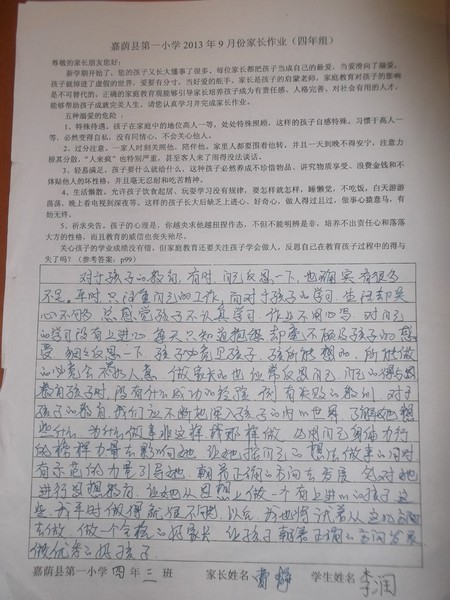 嘉荫县第一小学2013年9月份家长作业（四年组）
尊敬的家长朋友您好：
新学期开始了，您的孩子又长大懂事了很多，每位家长都把孩子当成自己的最爱，当爱滑向了溺爱，
孩子就掉进了虚假的世界，爱要有分寸，当好爱的舵手。家长是孩子的启蒙老师，家庭教育对孩子的影响
是不可替代的。正确的家庭教育观能够引导家长培养孩子成为有责任感、人格完善、对社会有用的人才，
能够帮助孩子成就完美人生。请您认真学习并完成家长作业。
五种溺爱的危险：
1、特殊待遇。孩子在家庭中的地位高人一等，处处特殊照顾，这样的孩子自感特殊，习惯于高人一
等，必然变得自私，没有同情心，不会关心他人。
2、过分注意。一家人时刻关照他、陪伴他。家里人都要围着他转，并且一天到晚不得安宁，注意力
极其分散，“人来疯”也特别严重，甚至客人来了闹得没法谈话。
3、轻易满足。孩子要什么就给什么，这种孩子必然养成不珍惜物品、讲究物质享受、浪费金钱和不
体贴他人的坏性格，并且毫无忍耐和吃苦精神。
4、生活懒散。允许孩子饮食起居、玩耍学习没有规律，要怎样就怎样，睡懒觉，不吃饭，白天游游
荡荡，晚上看电视到深夜等。这样的孩子长大后缺乏上进心、好奇心，做人得过且过，做事心猿意马，有
始无终。
5、祈求央告。孩子的心理是，你越央求他越扭捏作态，不但不能明辨是非，培养不出责任心和落落
大方的性格，而且教育的威信也丧失殆尽。
关心孩子的学业成绩没有错，但家庭教育还要关注孩子学会做人，反思自己在教育孩子过程中的得与
失了吗？(参考答案：p99)
对于孩子的教育，有时间自己反思一下，也确实有很多
不足。平时只注重自己的工作，而对于孩子的学习、生活却关
心不够，总感觉孩子不认真学习，作业不用心写，对自己
的学习没有上进心，每天只知道抱怨却毫不顾及孩子的感
受。细细反思一下，孩子必竟是孩子，孩所能想的，所能做
的必竟会不如人意。做家长的也应常反思自己，自己的得与失
教育孩子时，没有什么成功的经验，该有失败的教训。对于
孩子的教育，我们应不断地深入孩子的内心世界，了解她想
些什么，为什么做事非这样、或那样做。必用自己身体力行
的榜样力量去影响她，让她按自己的想法做事的同时
有家长的力量引导她，朝着正确的方向去发展，多对她
进行思想教育，让她从思想上做一个有上进心的孩子，这
些，我平时做得就很不够，以后，我也将试着从这些方面
去做，做一个合格的好家长，让孩子朝着正确的方向发展
做优秀的好孩子。
嘉荫县第一小学 四 年 二 班 家长姓名 学生姓名 李润